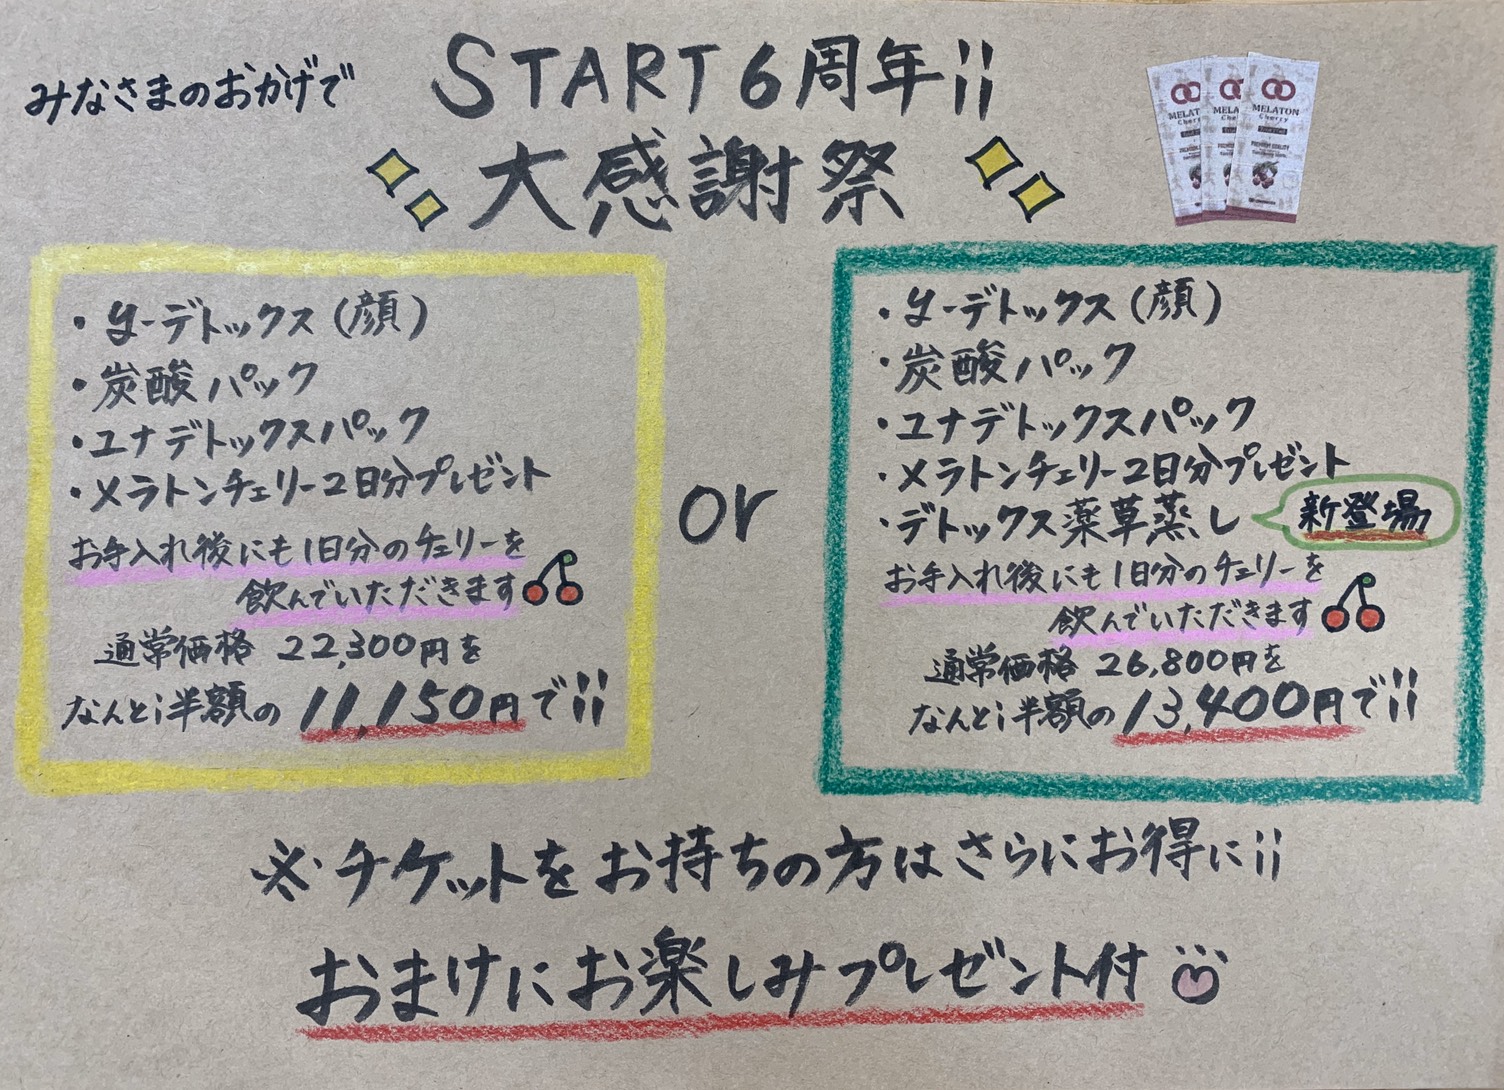 みなさまのおかげで
START6周年!!
大感謝祭
MELATON
Cherry
PREMIUM QUALITY
・y-デトックス(顔)
・炭酸パック
・ユナデトックスパック
・メラトンチェリー2日分プレゼント
お手入れ後にも1日分のチェリーを
飲んでいただだきます
通常価格 22,300円を
なんと!半額の 11,150円で!!
or
・y-デトックス(顔)
・炭酸パック
・ユナデトックスパック
・メラトンチェリー2日分プレゼント
・デトックス薬草蒸し
新登場
お手入れ後にも1日分のチェリーを
飲んでいただだきます
通常価格 26,800円を
なんと!半額の 13,400円で!!
※チケットをお持ちの方はさらにお得に!!
おまけにお楽しみプレゼント付